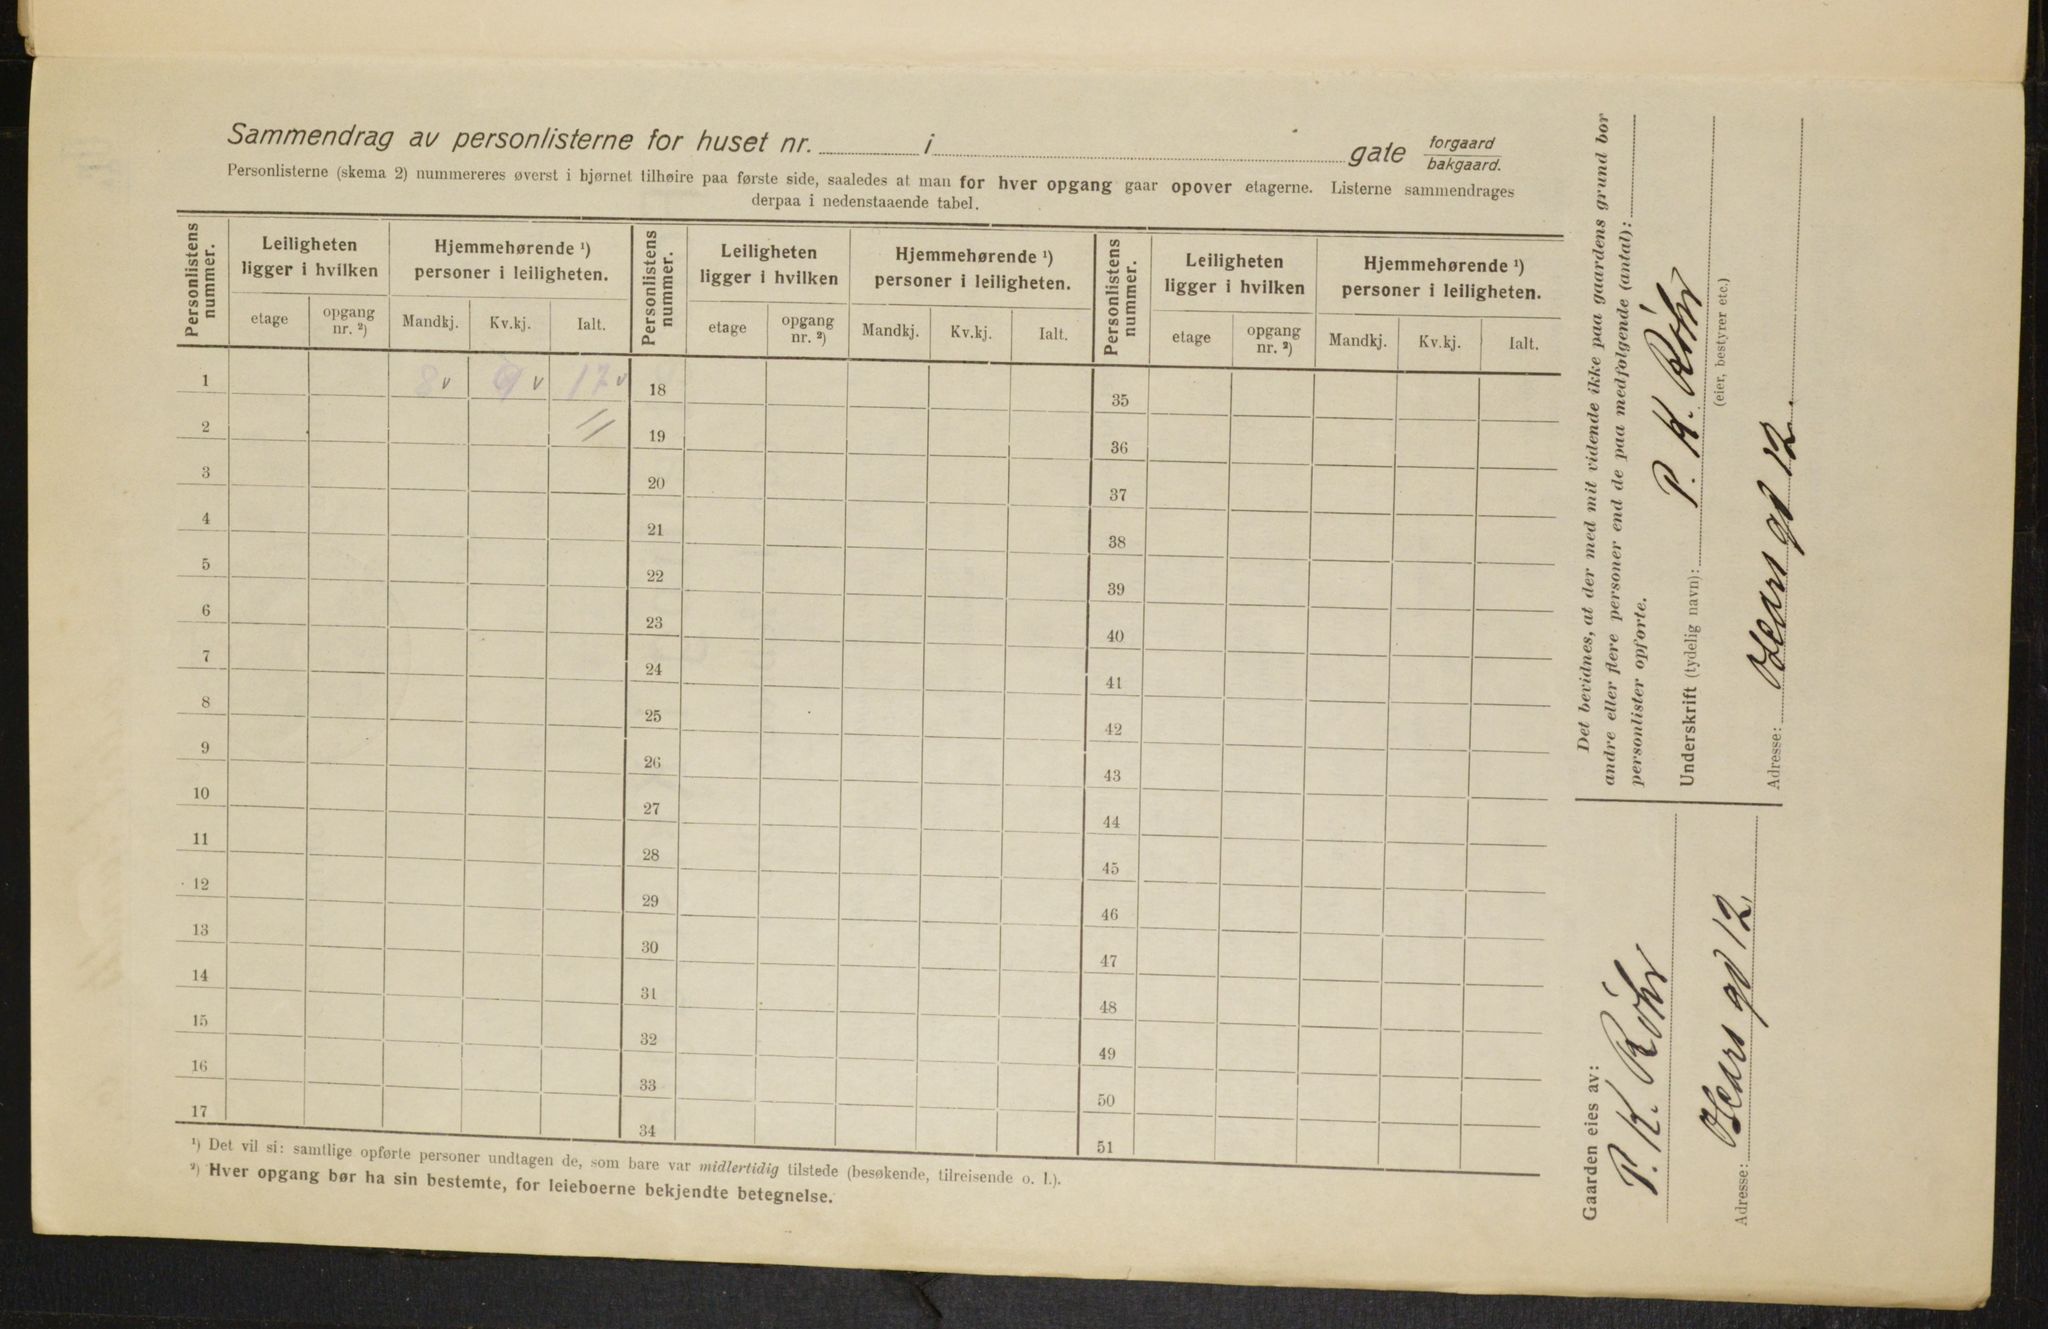 Sammendrag av personlisterne for huset nr. i gate forgaard
bakgaard.
Personlisterne (skema 2) nummereres øverst i hjørnet tilhøire paa første side, saaledes at man for hver opgang gaar opover etagerne. Listerne sammendrages
derpaa i nedenstaaende tabel.
Personlistens nummer. Leiligheten ligger i hvilken Hjemmehørende ¹) personer i leiligheten. Personlistens nummer. Leiligheten ligger i hvilken Hjemmehørende ¹) personer i leiligheten. Personlistens nummer. Leiligheten ligger i hvilken Hjemmehørende ¹) personer i leiligheten.
etage opgang nr. ²) Mandkj. Kv.kj. Ialt. etage opgang nr. ²) Mandkj. Kv.kj. Ialt. etage opgang nr. ²) Mandkj. Kv.kj. Ialt.
1 8 v 9 v 17 v 18 35
2 19 36
3 20 37
4 21 38
5 22 39
6 23 40
7 24 41
8 25 42
9 26 43
10 27 44
11 28 45
12 29 46
13 30 47
14 31 48
15 32 49
16 33 50
17 34 51
¹) Det vil si: samtlige opførte personer undtagen de, som bare var midlertidig tilstede (besøkende, tilreisende o. l.).
²) Hver opgang bør ha sin bestemte, for leieboerne bekjendte betegnelse.
Gaarden eies av:
P. K. Röhr
Adresse: gd 12.
Det bevidnes, at der med mit vidende ikke paa gaardens grund bor
andre eller flere personer end de paa medfolgende (antal):
personlister opforte.
Underskrift (tydelig navn): P. K. Röhr
(eier, bestyrer etc.)
Adresse: gd 12.